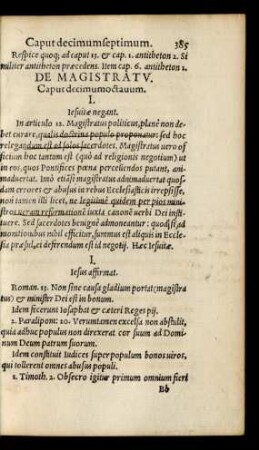 Caput decimumseptimum. 385
Respice quoq; ad caput 15. & cap. 1. antitheton 2. Si
militer antitheton præcedens. Item cap. 6. antitheton 1.
DE MAGISTRATV.
Caput decimumoctauum.
I.
Iesuitæ negant.
In articulo 12. Magistratus politicus, planè non de
bet curare, qualis doctrina populo proponatur: sed hoc
relegandum est ad solos sacerdotes, Magistratus vero of
ficium hoc tantum est (quò ad religionis negotium) ut
in eos, quos Pontifices pœna percellendos putant, ani
maduertat. Imò etiāsi magistratus adnimaduertat quos-
dam errores & abusus in rebus Ecclesiasticis irrepsisse,
non tamen illi licet, ne legitimè quidem per pios mini-
stros ueram reformationē iuxta canonē uerbi Dei insti-
tuere. Sed sacerdotes benignè admoneantur: quòd si, ad
monitionibus nihil efficitur, summus est aliquis in Eccle-
sia præsul, ei deferendum est id negotij. Hæc Iesuitæ.
I.
Iesus affirmat.
Roman. 13. Non sine causa gladium portat (magistra
tus) & minister Dei est in bonum.
Idem fecerunt Iosaphat & cæteri Reges pij.
2. Paralipom: 20. Veruntamen excelsa non abstulit,
quia adhuc populus non direxerat cor suum ad Domi-
num Deum patrum suorum.
Idem constituit Iudices super populum bonos uiros,
qui tollerent omnes abusus populi.
1. Timoth. 2. Obsecro igitur primum omnium fieri
Bb